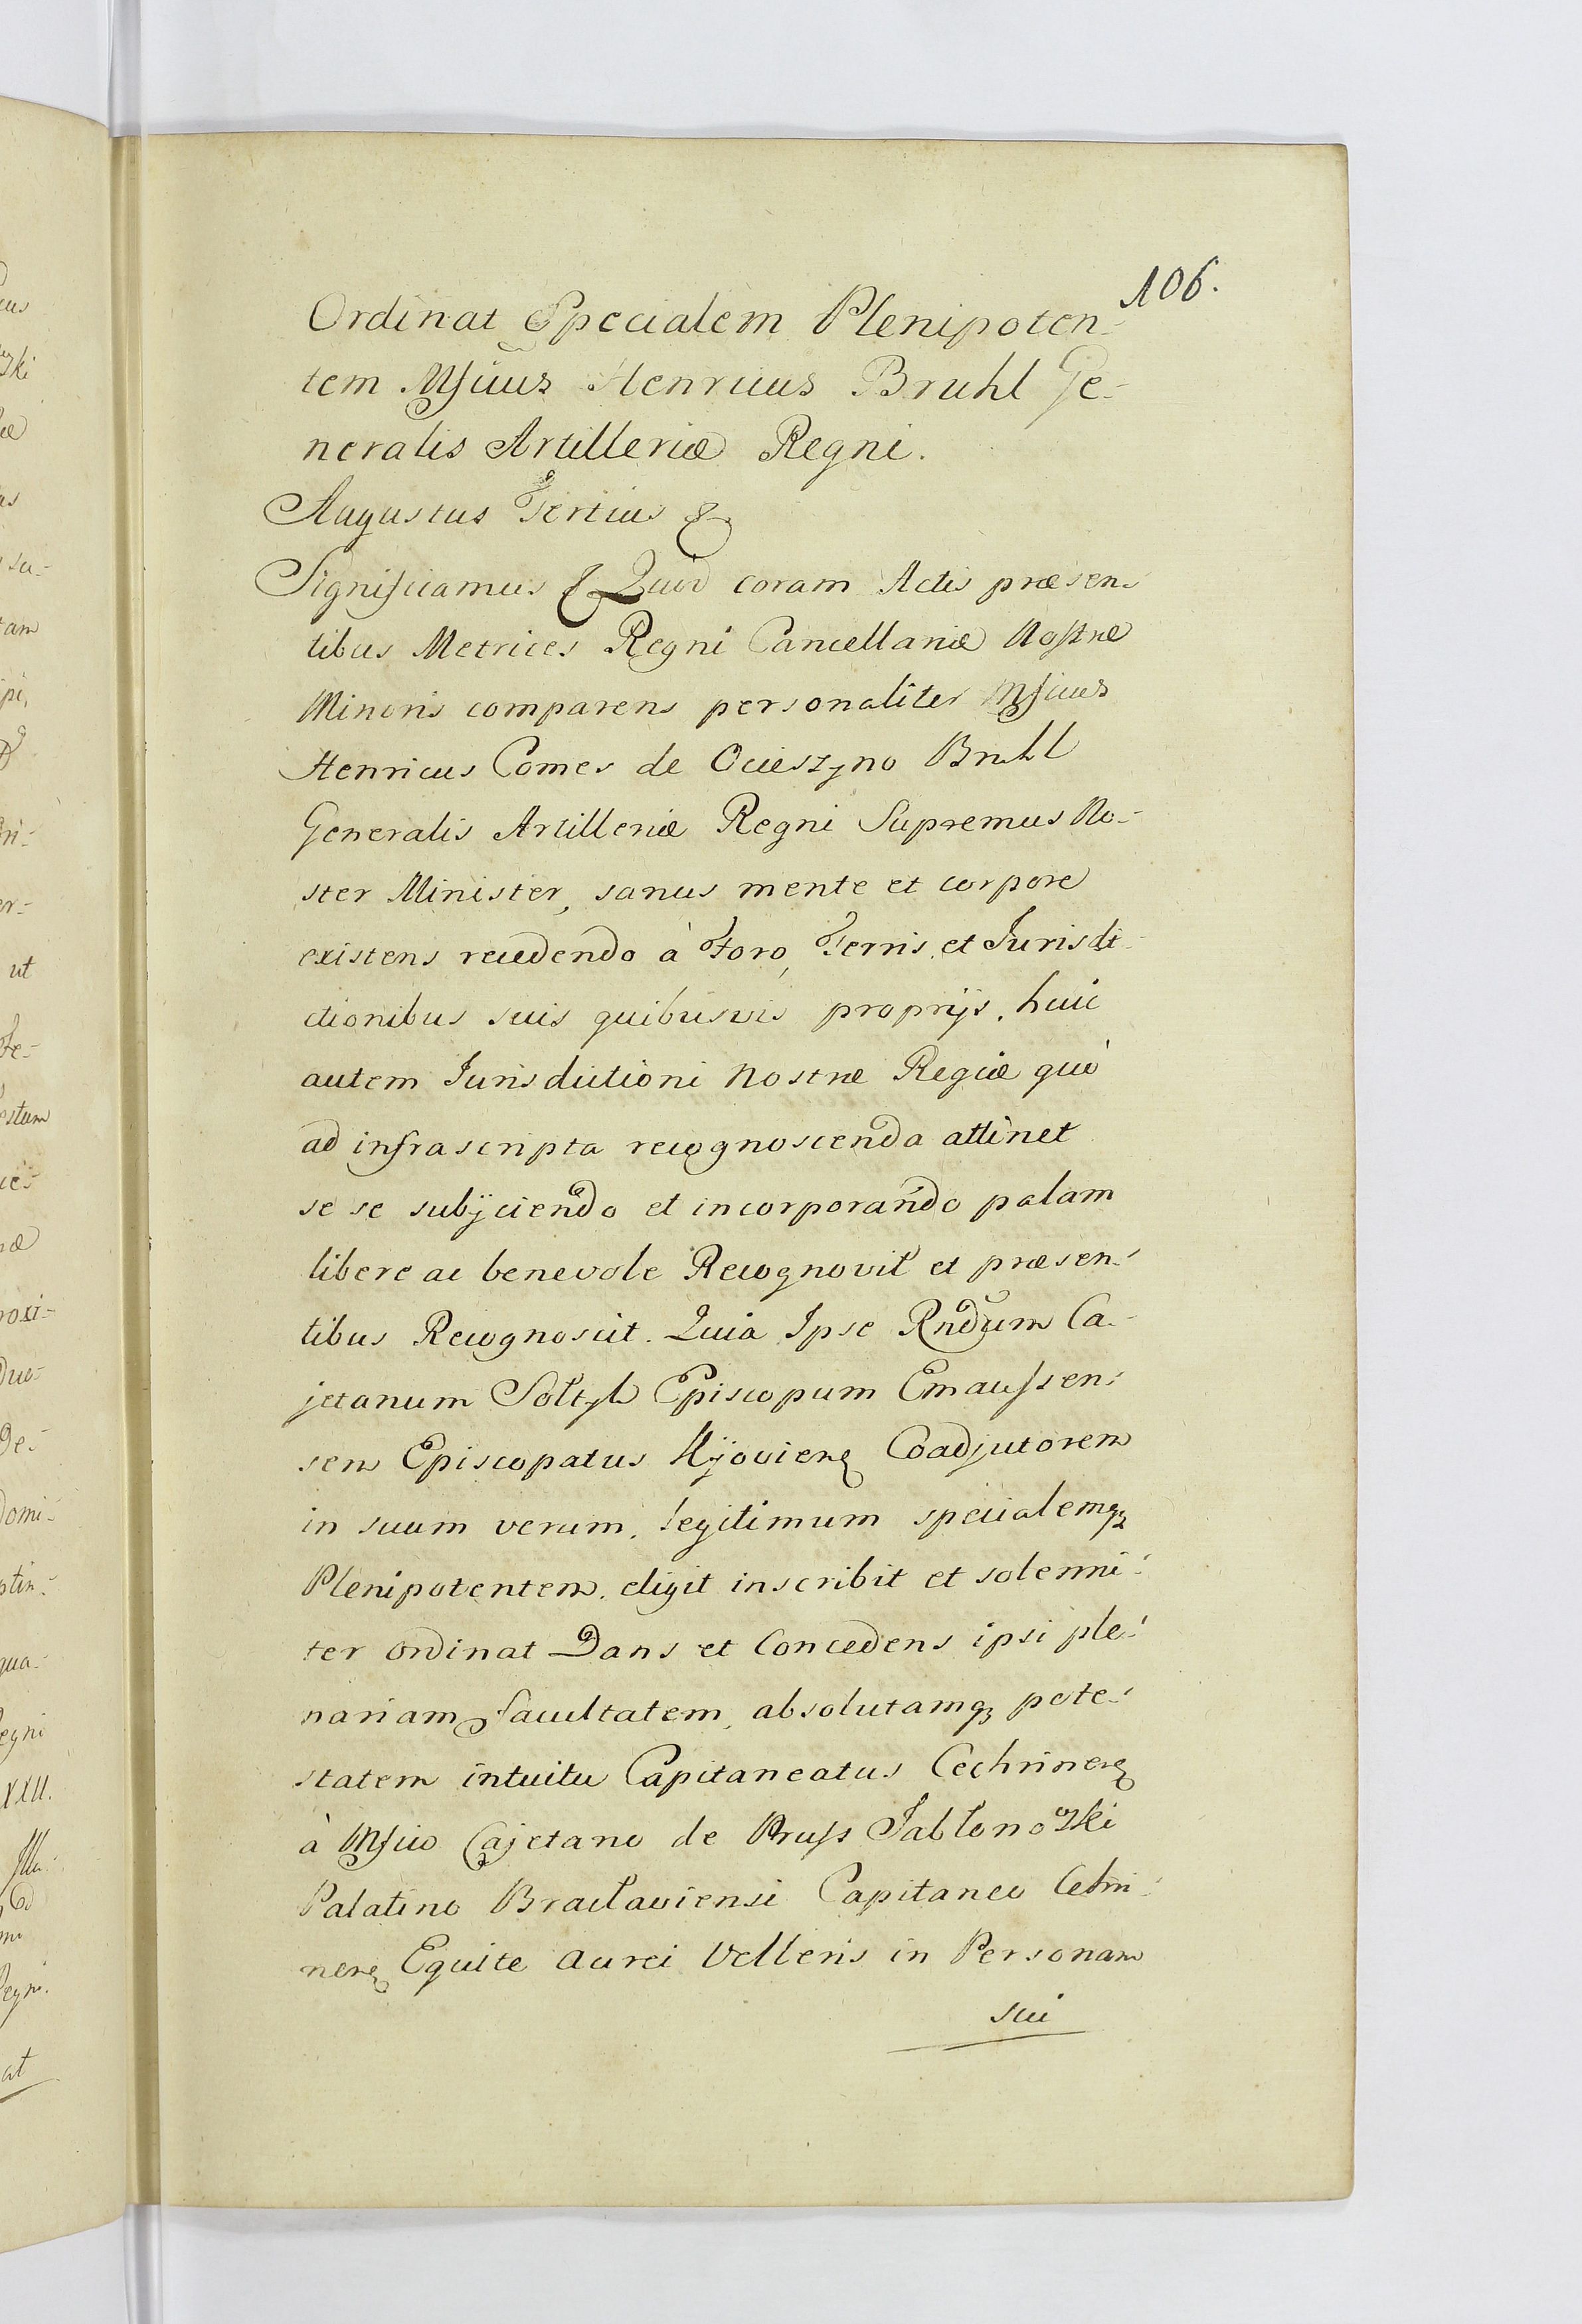 106.
Ordinat Specialem Plenipoten-
tem Mficus Henricus Bruhl Ge-
neralis Artilleriæ Regni.
Augustus Tertius &
Significamus & Quod coram Actis præsen-
tibus Metrices Regni Cancellariæ Nostræ
Minoris comparens personaliter Mficus
Henricus Comes de Ocieszyno Bruhl
Generalis Artilleriæ Regni Supremus No-
ster Minister, sanus mente et corpore
existens recedendo à Foro, Terris, et Jurisdi-
ctionibus suis quibusvis proprijs, huic
autem Jurisdictioni Nostræ Regiæ quò
ad infrascripta recognoscenda attinet
se se subijciendo et incorporando palam
libere ac benevole Recognovit et præsen-
tibus Recognoscit. Quia Ipse Rndum Ca-
jetanum Sołtyk Episcopum Emaussen-
sem Episcopatus Kijovien Coadjutorem
in suum verum, legitimum specialemq
Plenipotentem, eligit inscribit et solenni-
ter ordinat Dans et Concedens ipsi ple-
nariam facultatem, absolutamq pote-
statem intuitu Capitaneatus Cechrinen
à Mfico Cajetano de Pruss Jabłonowski
Palatino Bracłaviensi Capitaneo Cehri-
nen Equite Aurei Velleris in Personam
sui